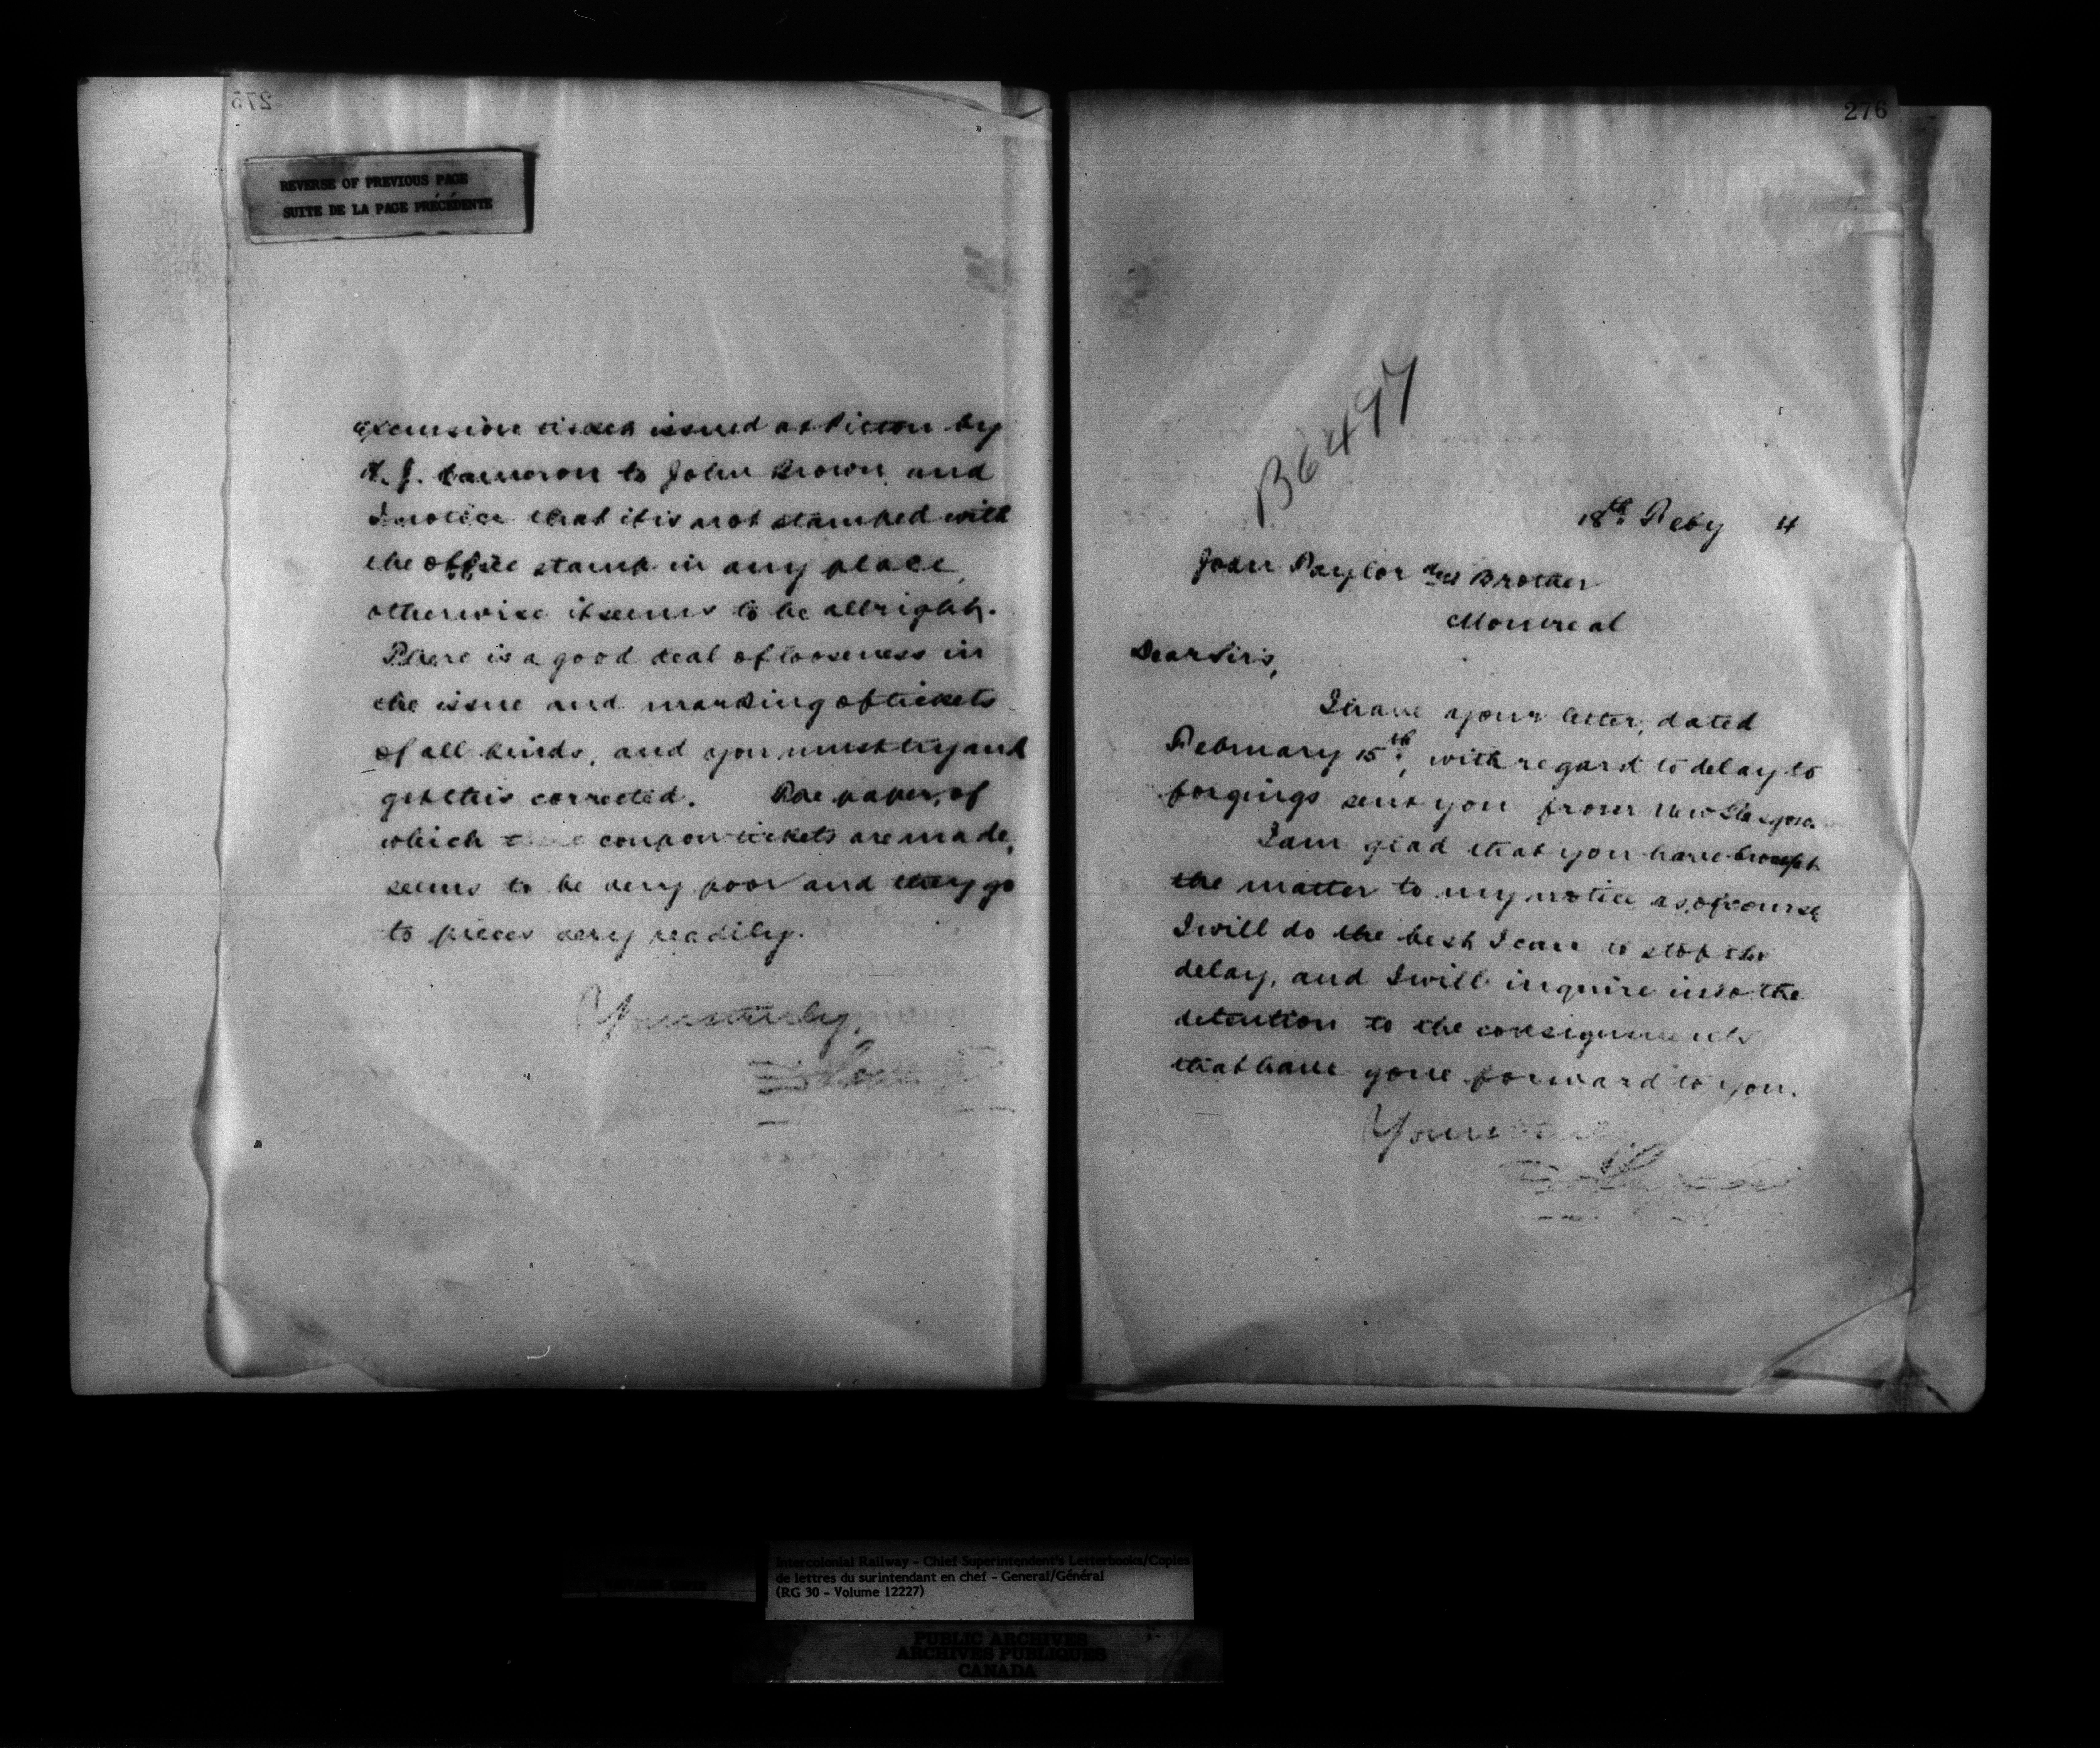 275
REVERSE OF PREVIOUS PAGE
SUITE DE LA PAGE PRÉCÉDENTE
excursion ticket issued at Pictou by
J. Cameron to John Brown and
I notice that it is not stamped with
the office stamp in any place,
otherwise it seems to be allright.
There is a good deal of looseness in
the issue and marking of tickets
of all kinds, and you must try and
get this corrected. The paper, of
which these coupon tickets are made,
seems to be very poor and they go
to pieces very readily.
Yours truly,
276
B6497
18th Feby 4
John Taylor and Brother
Montreal
Dear Sirs,
I have your letter, dated
February 15th, with regard to delay to
forgings sent you from New Glasgow.
I am glad that you have brought
the matter to my notice as, of course
I will do the best I can to stop the
delay, and I will inquire into the
detention to the consignments
that have gone forward to you.
Yours truly
Intercolonial Railway - Chief Superintendent's Letterbooks/Copies
de lettres du surintendant en chef - General/Général
(RG 30 - Volume 12227)
PUBLIC ARCHIVES
ARCHIVES PUBLIQUES
CANADA